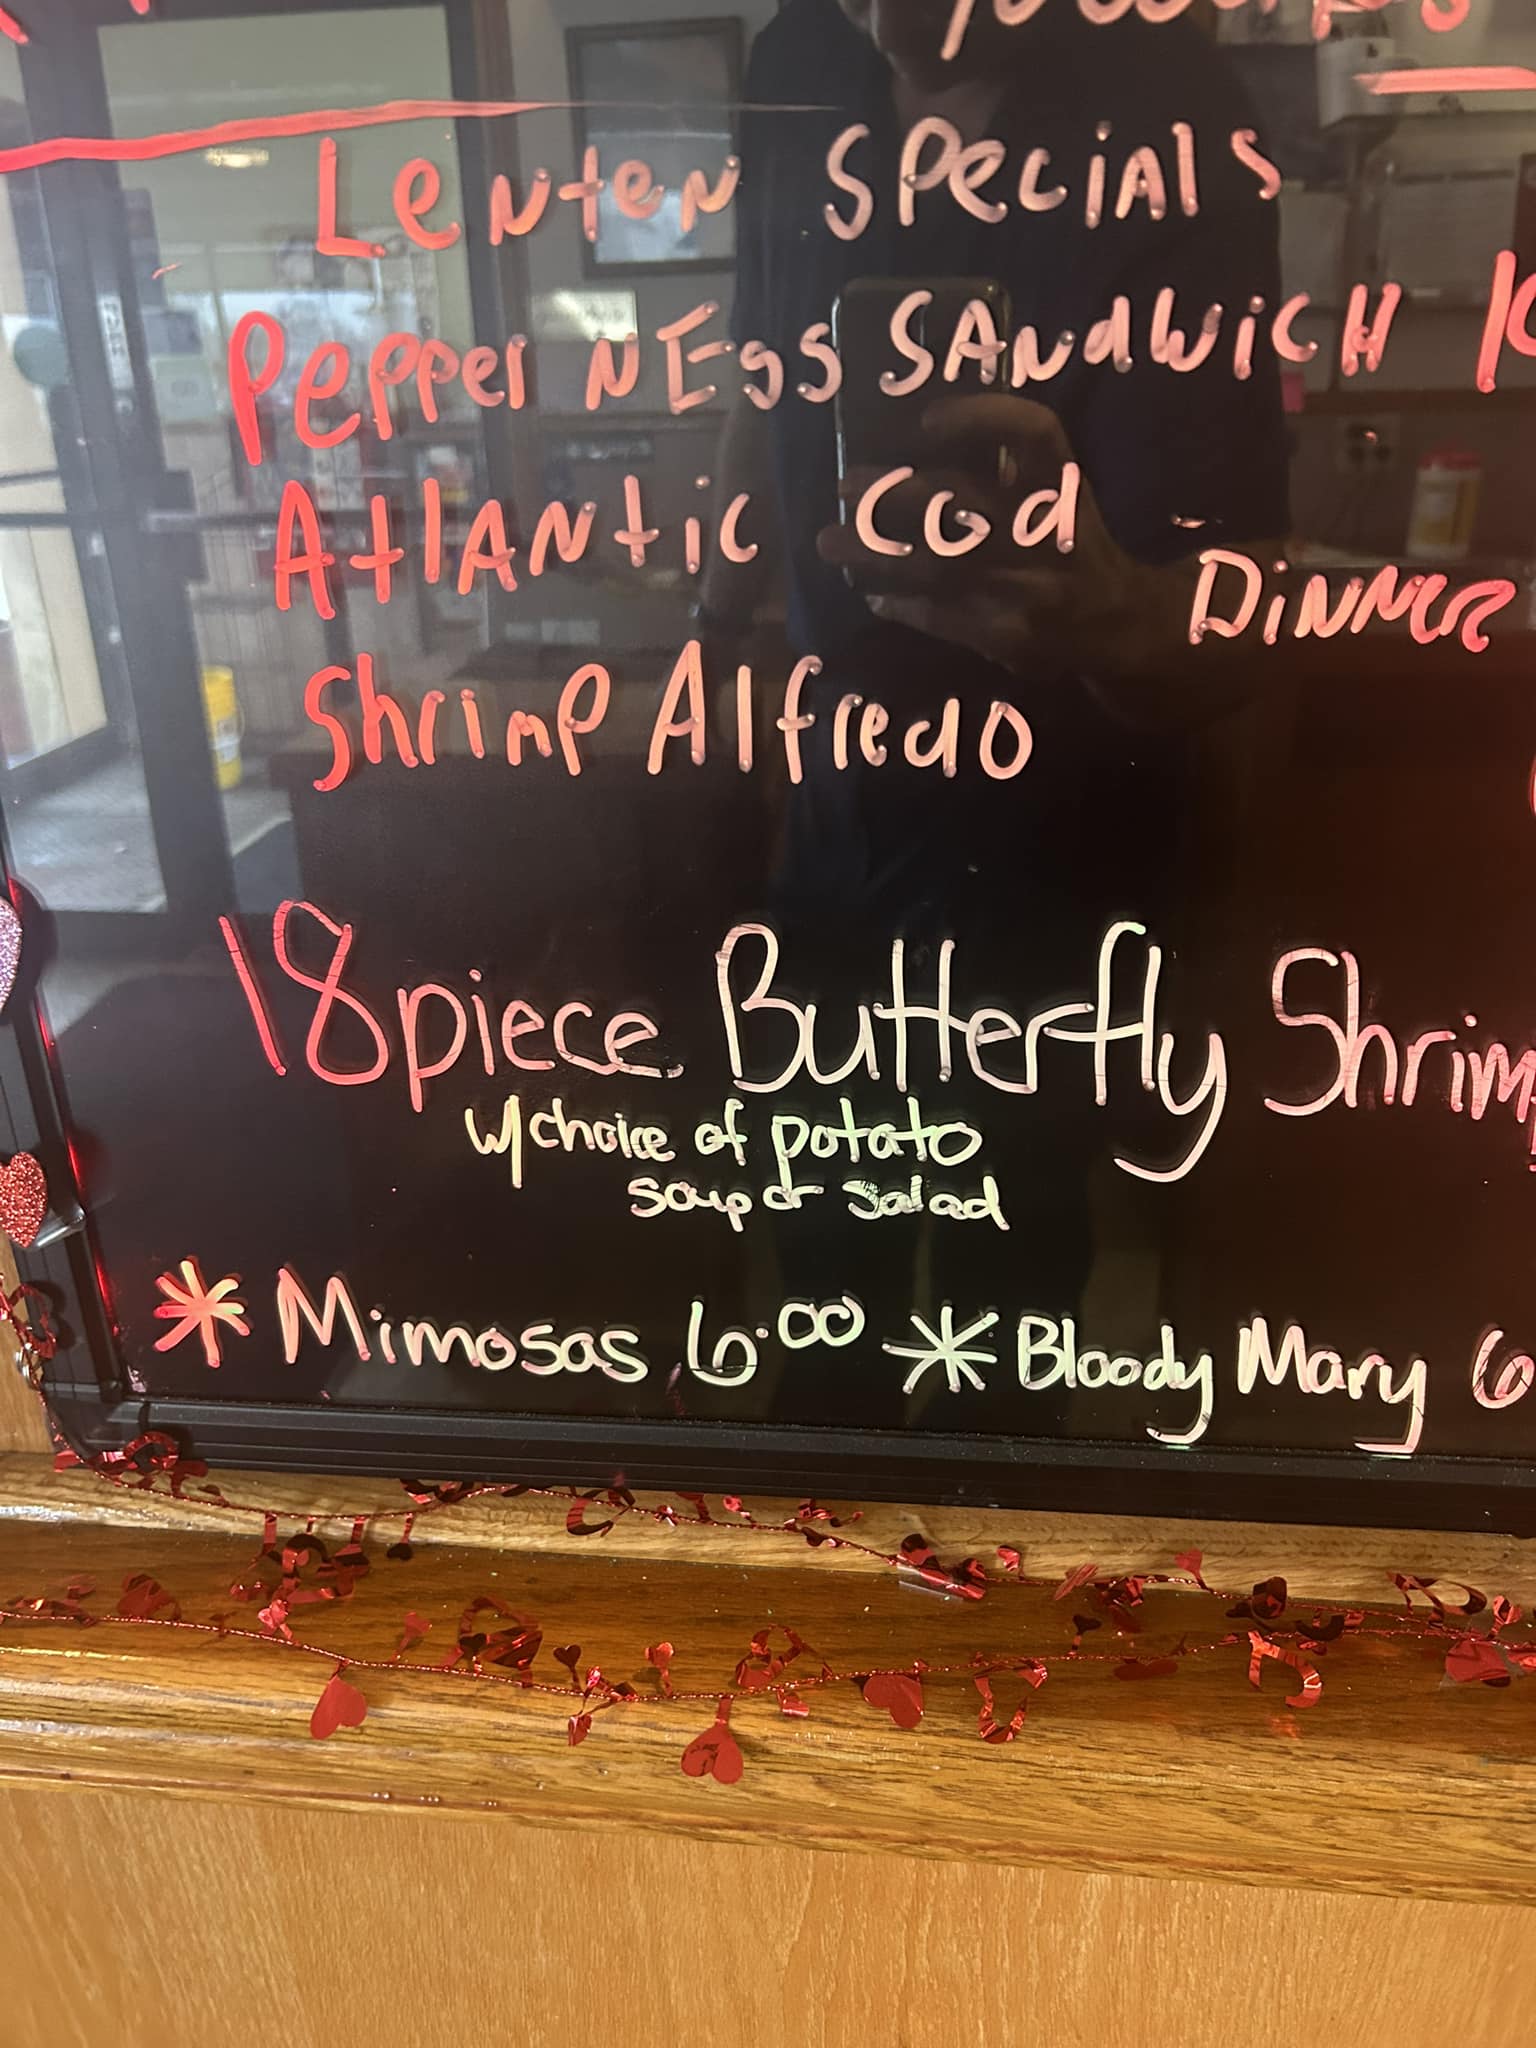 Lenten Specials
Pepper N Eggs Sandwich
Atlantic Cod Dinner
Shrimp Alfredo
18 piece Butterfly Shrimp
w/ choice of potato
soup or salad
* Mimosas 6.00 * Bloody Mary 6